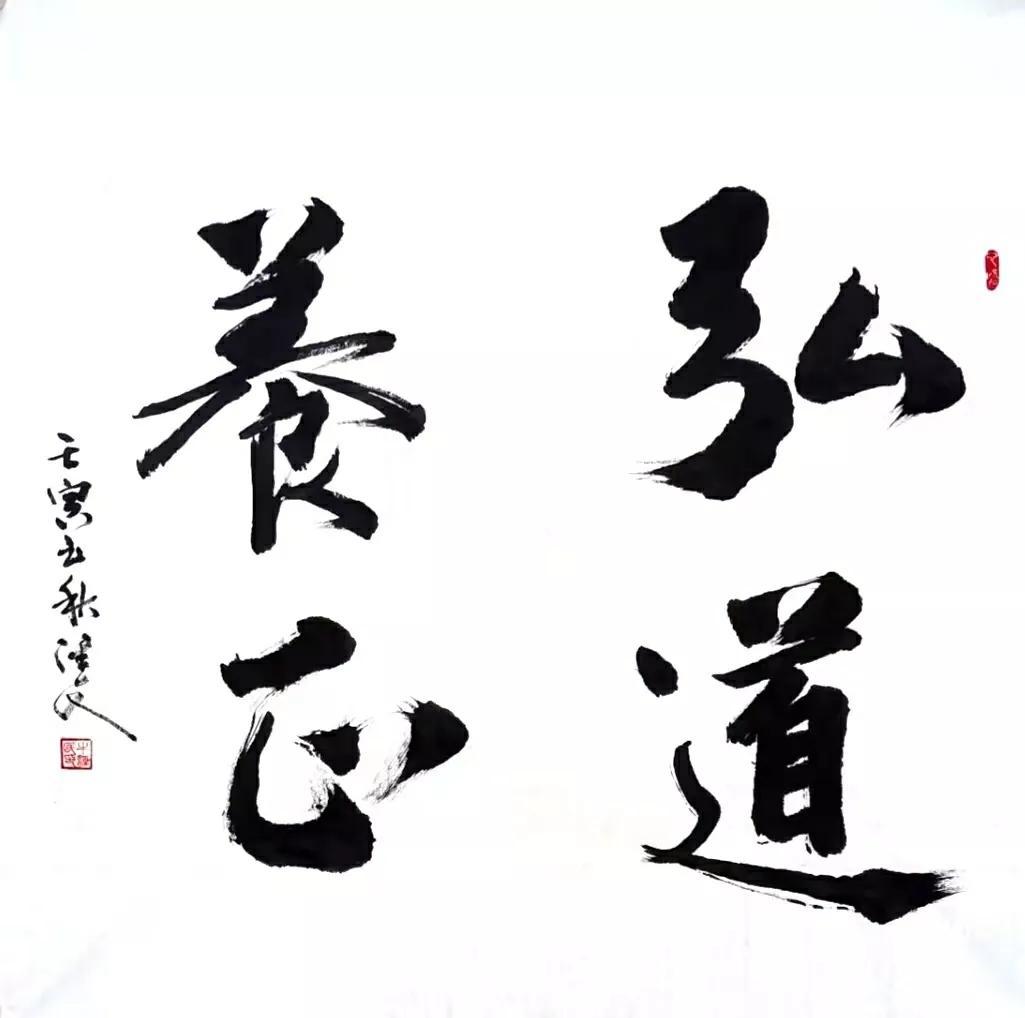 弘道
養正
壬寅立秋